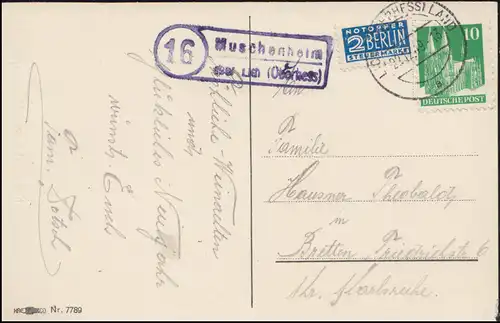 16
Muschenheim
über Lich (Oberhess)
NOTOPFER
2 BERLIN
STEUERMARKE
10
DEUTSCHE POST
An
Familie
Hausner Theobald
in
Bretten Friedrichstr. 6
Kr. Karlsruhe.
Fröhliche Weihnachten
und
glückliches Neujahr
wünscht Euch
Fam.
Nr. 7789